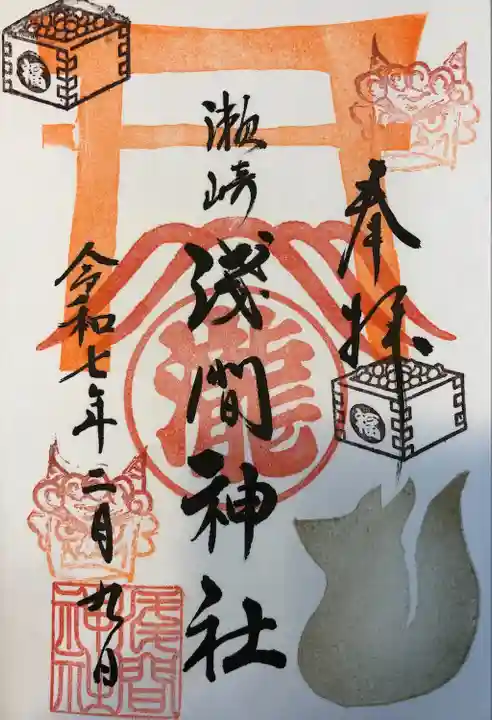 奉拝
瀬崎
浅間神社
令和七年二月九日
福
福
瀧
浅間
神社